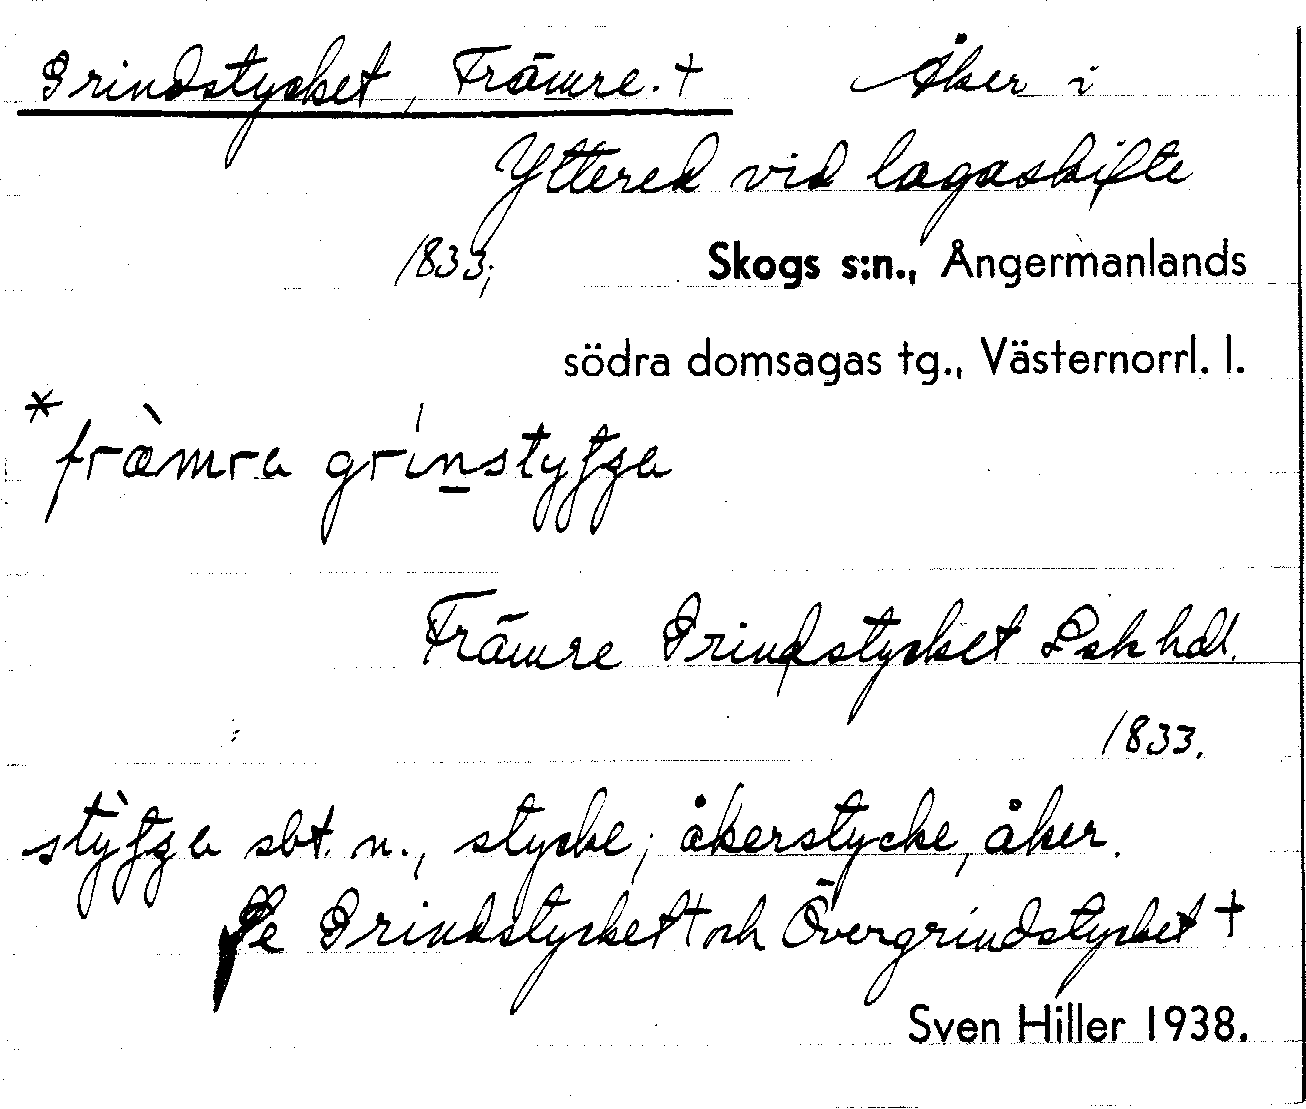 Grindstycket, Främre. †   Åker i
Yttered vid lagaskifte
1833;   Skogs s:n., Ångermanlands
södra domsagas tg., Västernorrl. l.
* fràmra grinstyʃʒa
Främre Grindstycket Lskhdl.
1833.
stỳʃʒa sbt. n., stycke; åkerstycke, åker.
Se Grindstycket † och Övergrindstycket †
Sven Hiller 1938.